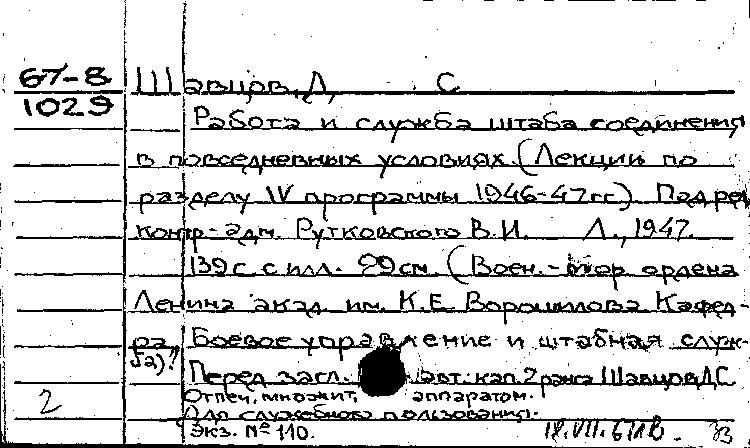 67-8 Шавцов, Д, С
1029
Работа и служба штаба соединения
в повседневных условиях. (Лекции по
разделу IV программы 1946-47гг). Под ред
контр-адм. Рутковского В.И. Л., 1947.
139 с. с илл. 29см. (Воен.-мор ордена
Ленина акад. им. К.Е. Ворошилова Кафед-
ра Боевое управление и штабная служ-
ба)?
Перед загл. авт: кап. 2 ранга Шавцов ДС
Отпеч. множит. аппаратом.
2 Для служебного пользования.
Экз. № 110. 18.VII.67